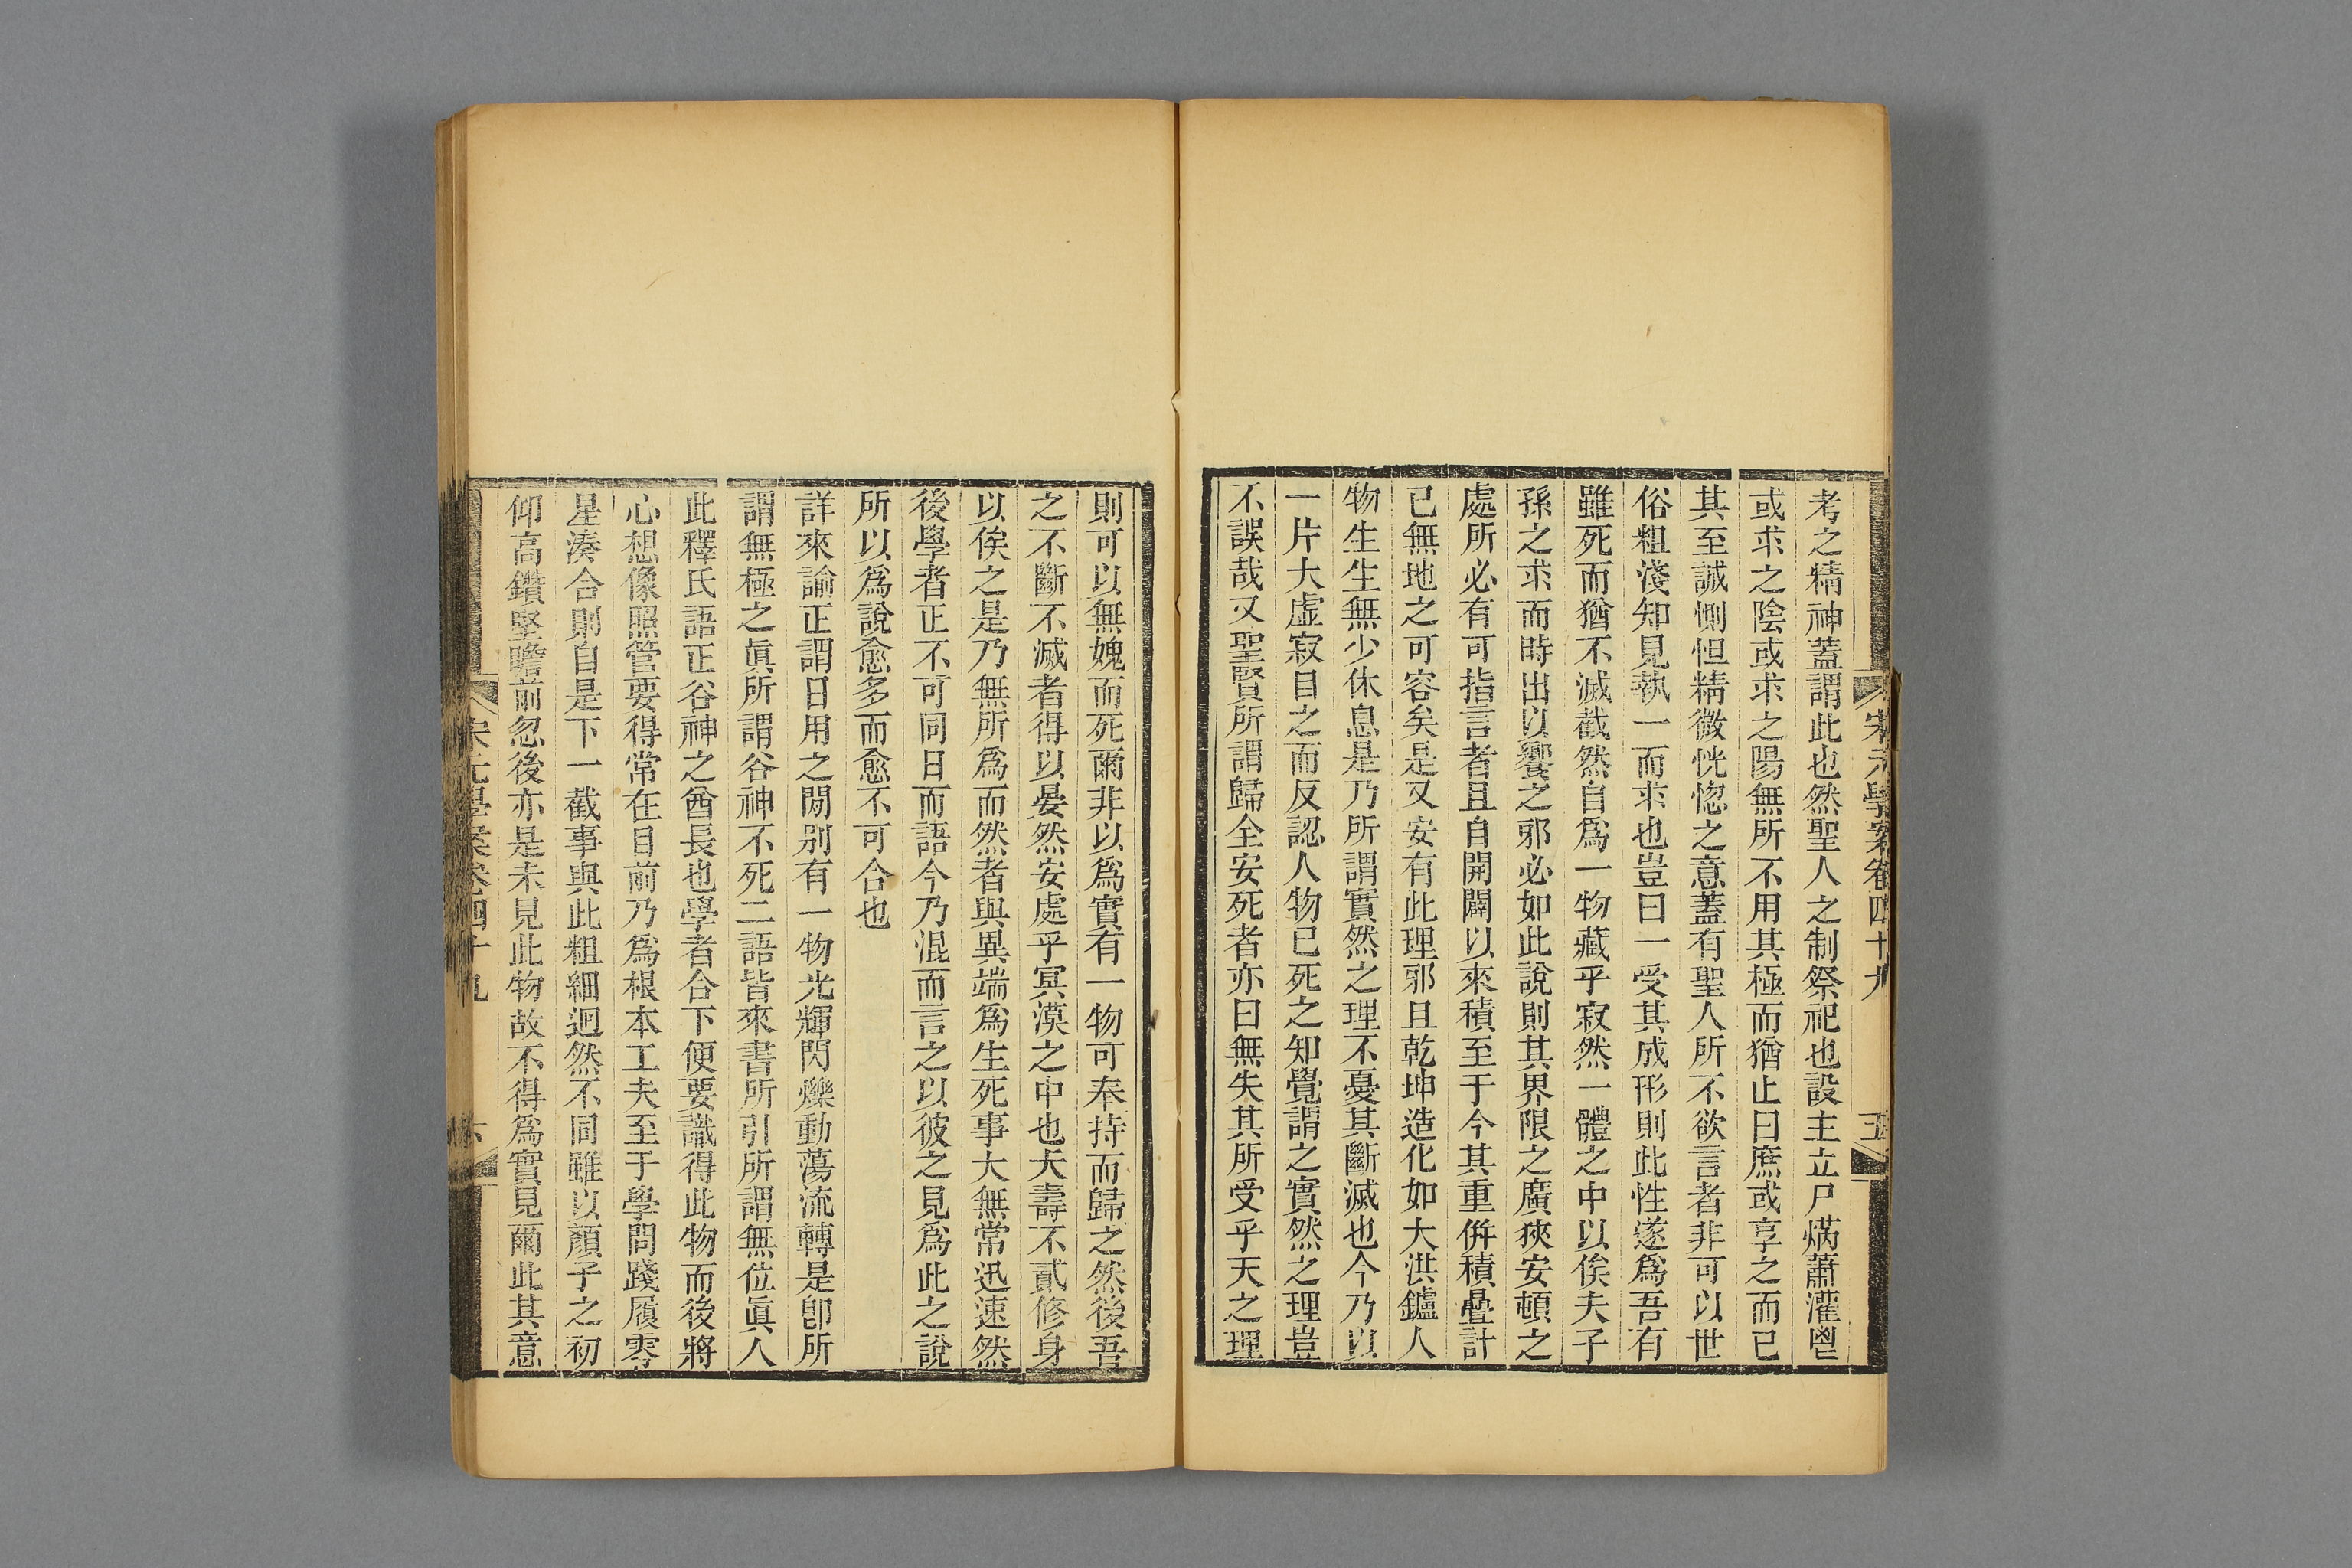 宋元學案卷四十九
五
考之精神蓋謂此也然聖人之制祭祀也設主立尸焫蕭灌鬯
或求之陰或求之陽無所不用其極而猶止曰庶或享之而已
其至誠惻怛精微恍惚之意蓋有聖人所不欲言者非可以世
俗粗淺知見執一而求也豈曰一受其成形則此性遂爲吾有
雖死而猶不滅截然自爲一物藏乎寂然一體之中以俟夫子
孫之求而時出以饗之邪必如此說則其界限之廣狹安頓之
處所必有可指言者且自開闢以來積至于今其重倂積疊計
已無地之可容矣是又安有此理邪且乾坤造化如大洪鑪人
物生生無少休息是乃所謂實然之理不憂其斷滅也今乃以
一片大虛寂目之而反認人物已死之知覺謂之實然之理豈
不誤哉又聖賢所謂歸全安死者亦曰無失其所受乎天之理
則可以無媿而死爾非以爲實有一物可奉持而歸之然後吾
之不斷不滅者得以晏然安處乎冥漠之中也夭壽不貳修身
以俟之是乃無所爲而然者與異端爲生死事大無常迅速然
後學者正不可同日而語今乃混而言之以彼之見爲此之說
所以爲說愈多而愈不可合也
詳來諭正謂日用之閒别有一物光輝閃爍動蕩流轉是卽所
謂無極之眞所謂谷神不死二語皆來書所引所謂無位眞人
此釋氏語正谷神之酋長也學者合下便要識得此物而後將
心想像照管要得常在目前乃爲根本工夫至于學問踐履零
星湊合則自是下一截事與此粗細迥然不同雖以顏子之初
仰高鑽堅瞻前忽後亦是未見此物故不得爲實見爾此其意
宋元學案卷四十九
六